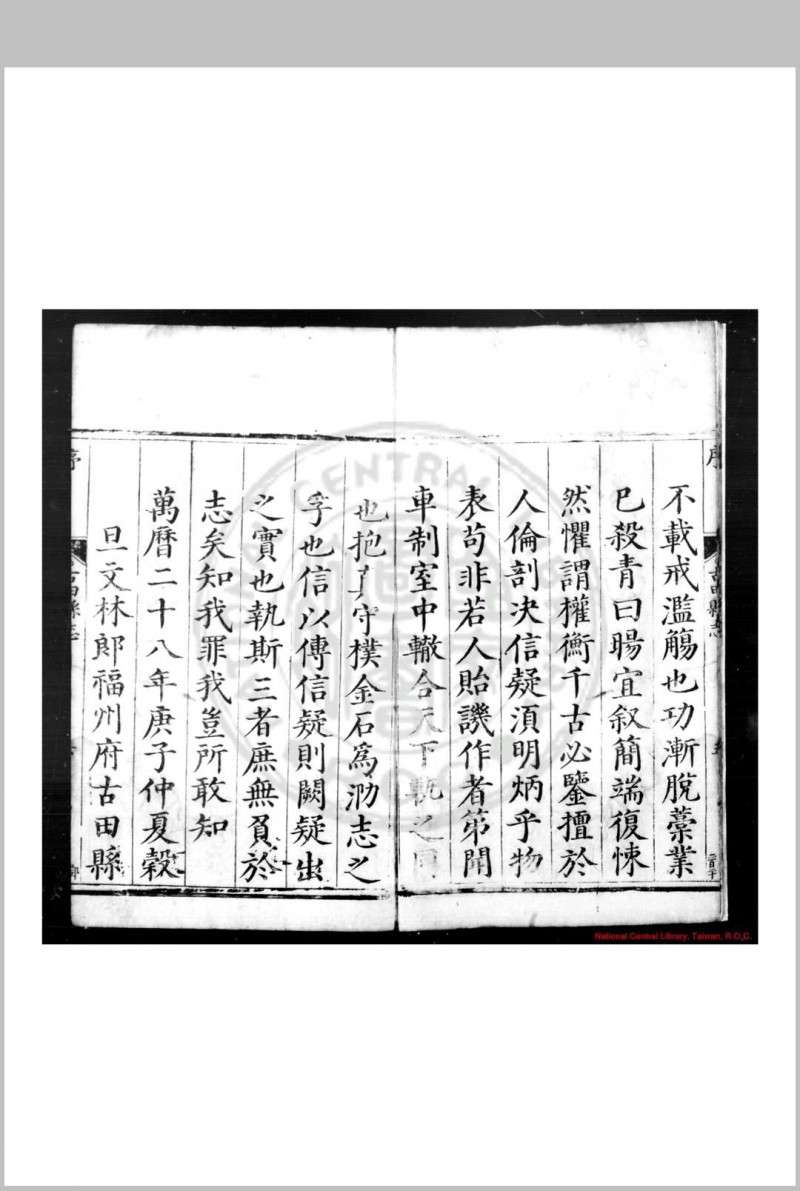 不載戒濫觴也功漸脫藁業
已殺青日暘宜叙簡端復悚
然懼謂權衡千古必鑒擅於
人倫剖决信疑湏明炳乎物
表苟非若人貽譏作者第聞
車制室中轍合天下軌之同
也抱真守樸金石爲泐志之
孚也信以傳信疑則闕疑出
之實也執斯三者庶無負於
志矣知我罪我豈所敢知
萬曆二十八年庚子仲夏穀
旦文林郎福州府古田縣
序
古田縣志
NATIONAL CENTRAL LIBRARY
National Central Library, Taiwan, R.O.C.